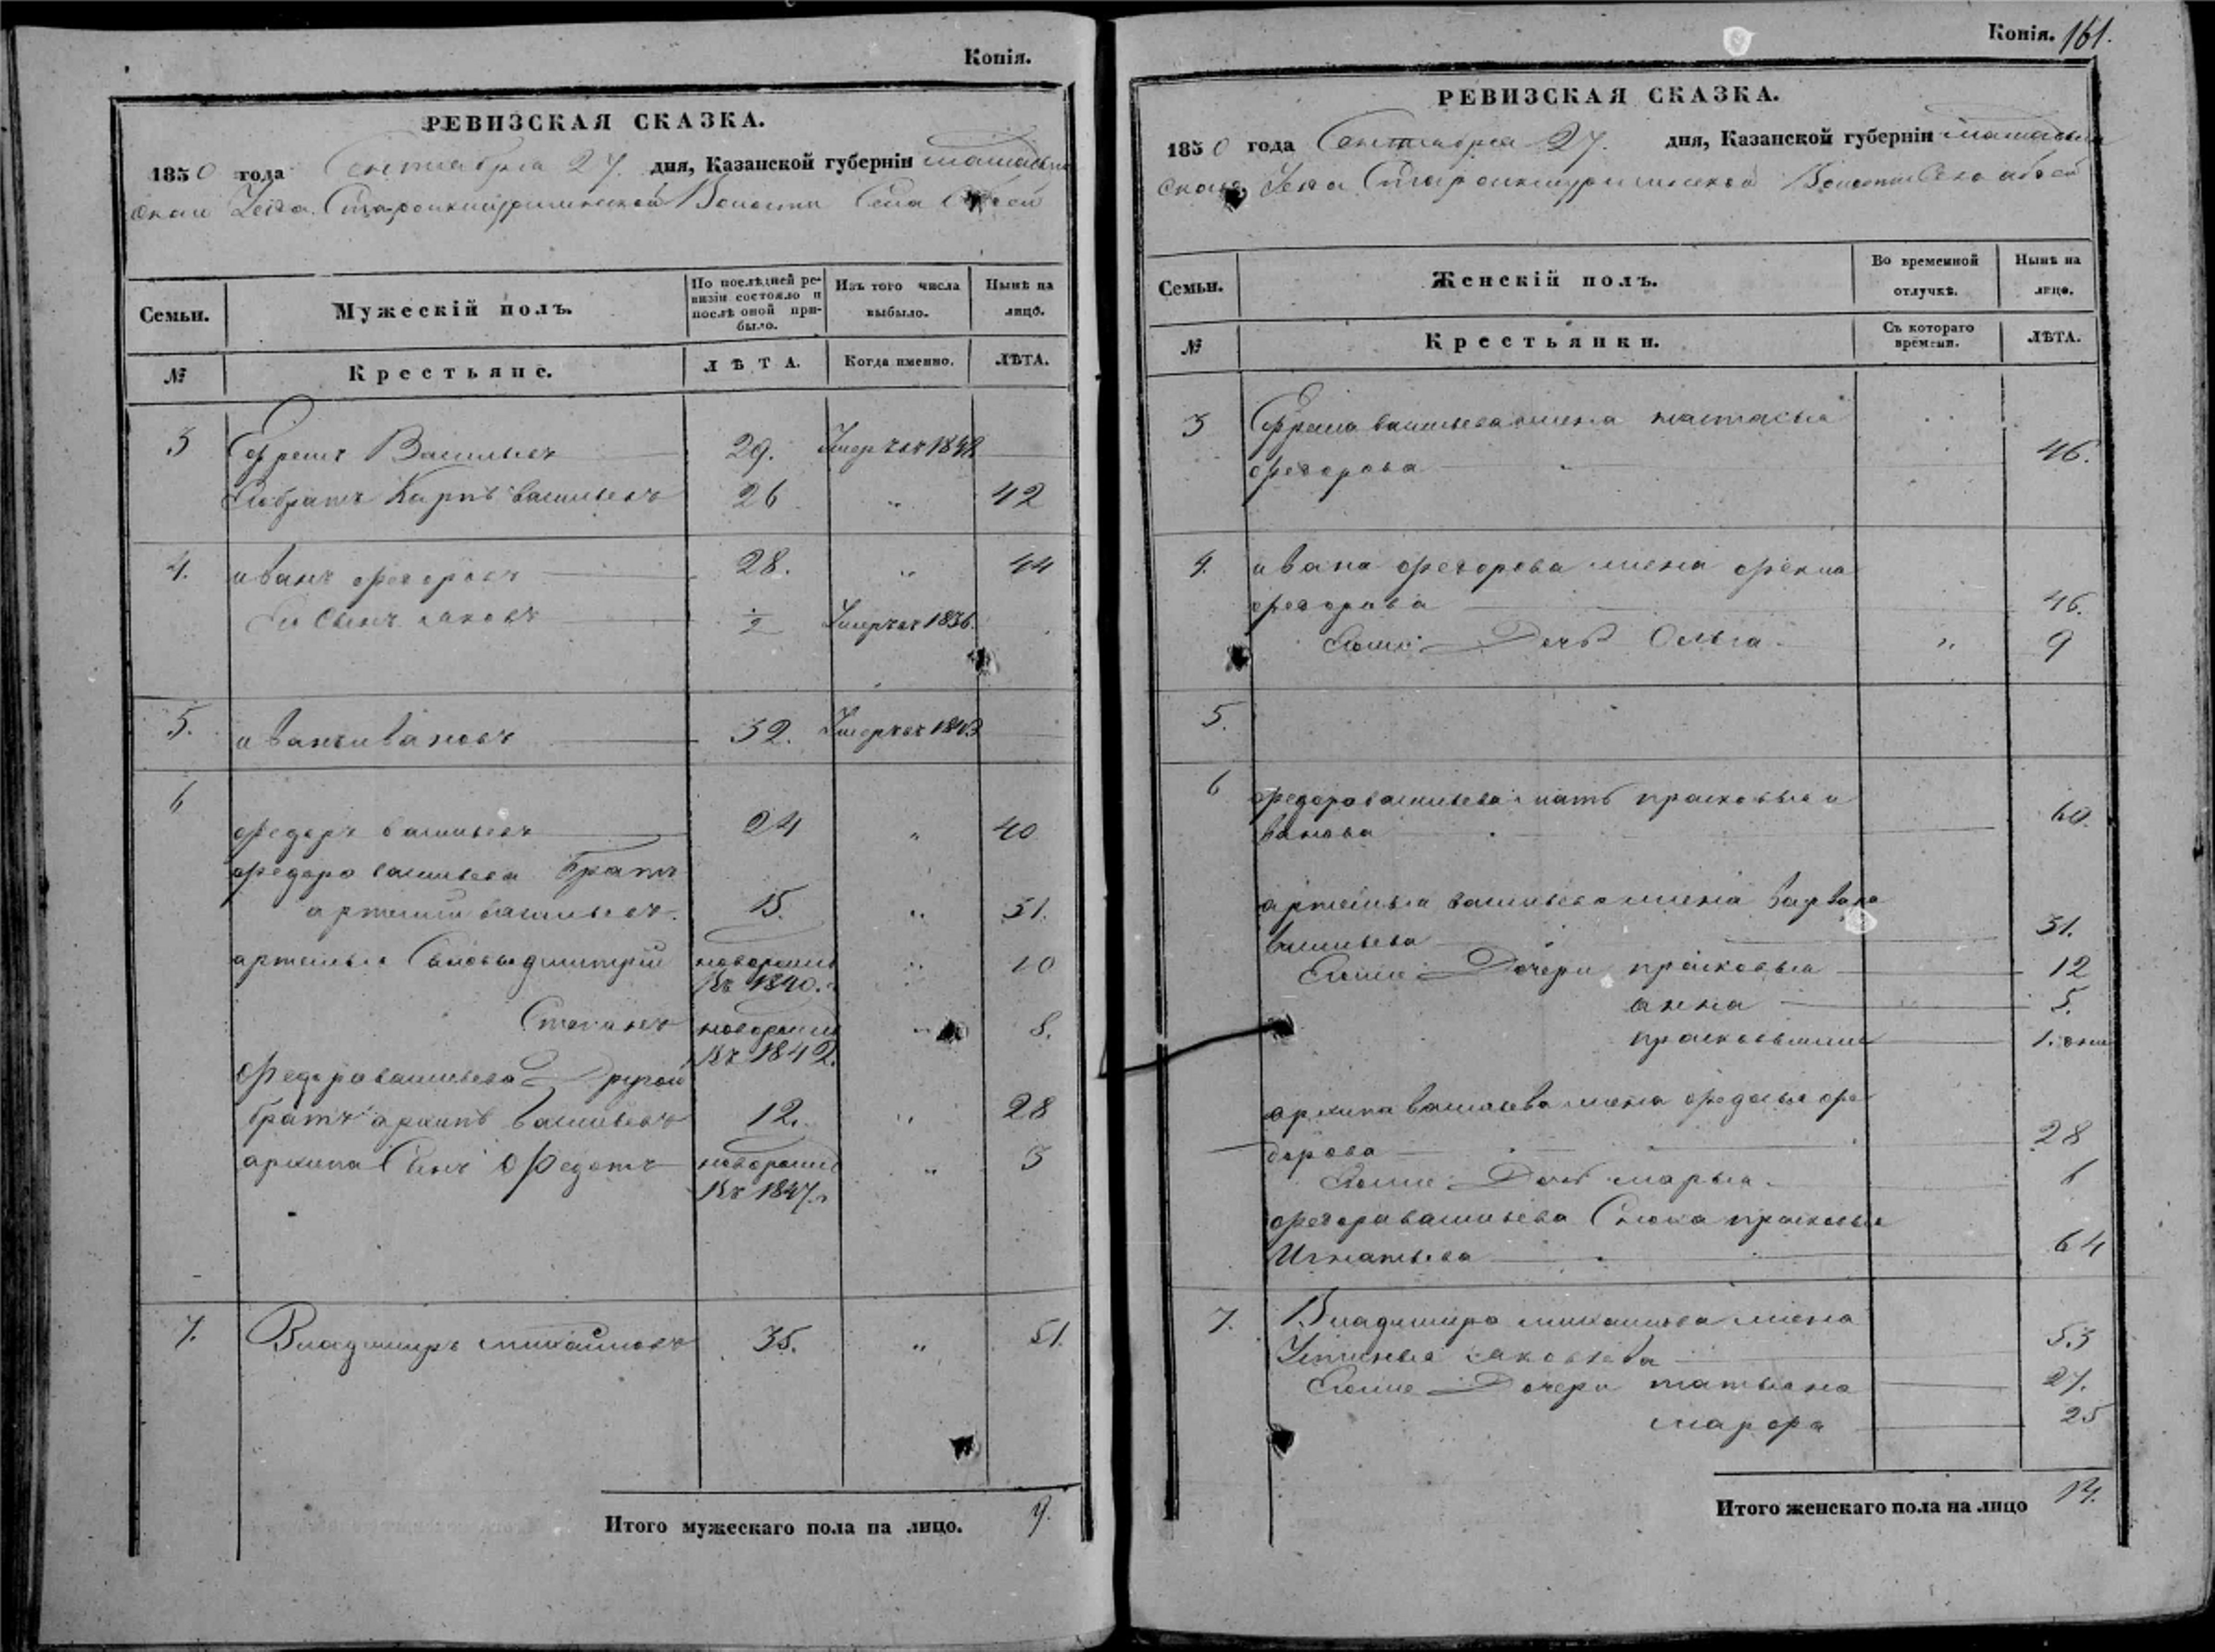 Копія.
РЕВИЗСКАЯ СКАЗКА.
1850 года Сентября 27. дня, Казанской губерніи мамадыш
скаго Уезда Волости Села абдей
Семьи.
Мужескій полъ.
По послѣдней ре-
визіи состояло и
послѣ оной при-
было.
Изъ того числа
выбыло.
Нынѣ на
лицо.
№
Крестьяне.
ЛѢТА.
Когда именно.
ЛѢТА.
3 Ефремъ Васильевъ 29. Умеръ въ 1848
Карпъ васильевъ 26 " 42
4. иванъ федоровъ 28. " 44
Ево Сынъ яковъ 1/2 Умеръ въ 1836.
5. иванъ ивановъ 32. Умеръ въ 1843
6
федоръ васильевъ 24 " 40
федора васильева братъ
артемий васильевъ. 15. " 31.
артемья Сыновья дмитрий новорожд " 10
въ 1840.
Степанъ новорожд " 8.
въ 1842.
федора васильева Другой
братъ архипъ васильевъ 12. " 28
архипа Сынъ Федотъ новорожд " 3
въ 1847.
7. Владимиръ михайловъ 35. " 51.
Итого мужескаго пола на лицо. 9.
Копія. 161.
РЕВИЗСКАЯ СКАЗКА.
1850 года Сентября 27. дня, Казанской губерніи мамадыш
скаго Уезда Волости Села абдей
Семьи.
Женскій полъ.
Во временной
отлучкѣ.
Нынѣ на
лицо.
№
Крестьянки.
Съ котораго
времени.
ЛѢТА.
3 Ефрема васильева жена настасья
федорова 46.
4. ивана федорова жена фекла
федорова 46.
Дочь Ольга " 9
5.
6 федора васильева мать прасковья и
ванова 60.
артемья васильева жена варвара
васильева 31.
Дочери прасковья 12
анна 5.
прасковья 1.
архипа васильева жена федосья фе
дорова 28
Дочь марья 6
федора васильева Сноха прасковья
Игнатьева 64
7. Владимира михайлова жена
Устинья яковлева 53
Дочери татьяна 27.
марфа 25
Итого женскаго пола на лицо 14.